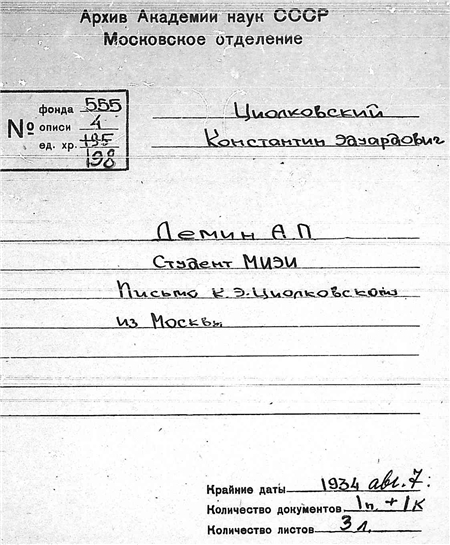 Архив Академии наук СССР
Московское отделение
№ фонда 555
описи 4
ед. хр. 195
198
Циолковский
Константин Эдуардович
Демин А.П
Студент МИЭИ
Письмо К.Э.Циолковскому
из Москвы
Крайние даты 1934 авг. 7.
Количество документов 1п. + 1к
Количество листов 3 л.